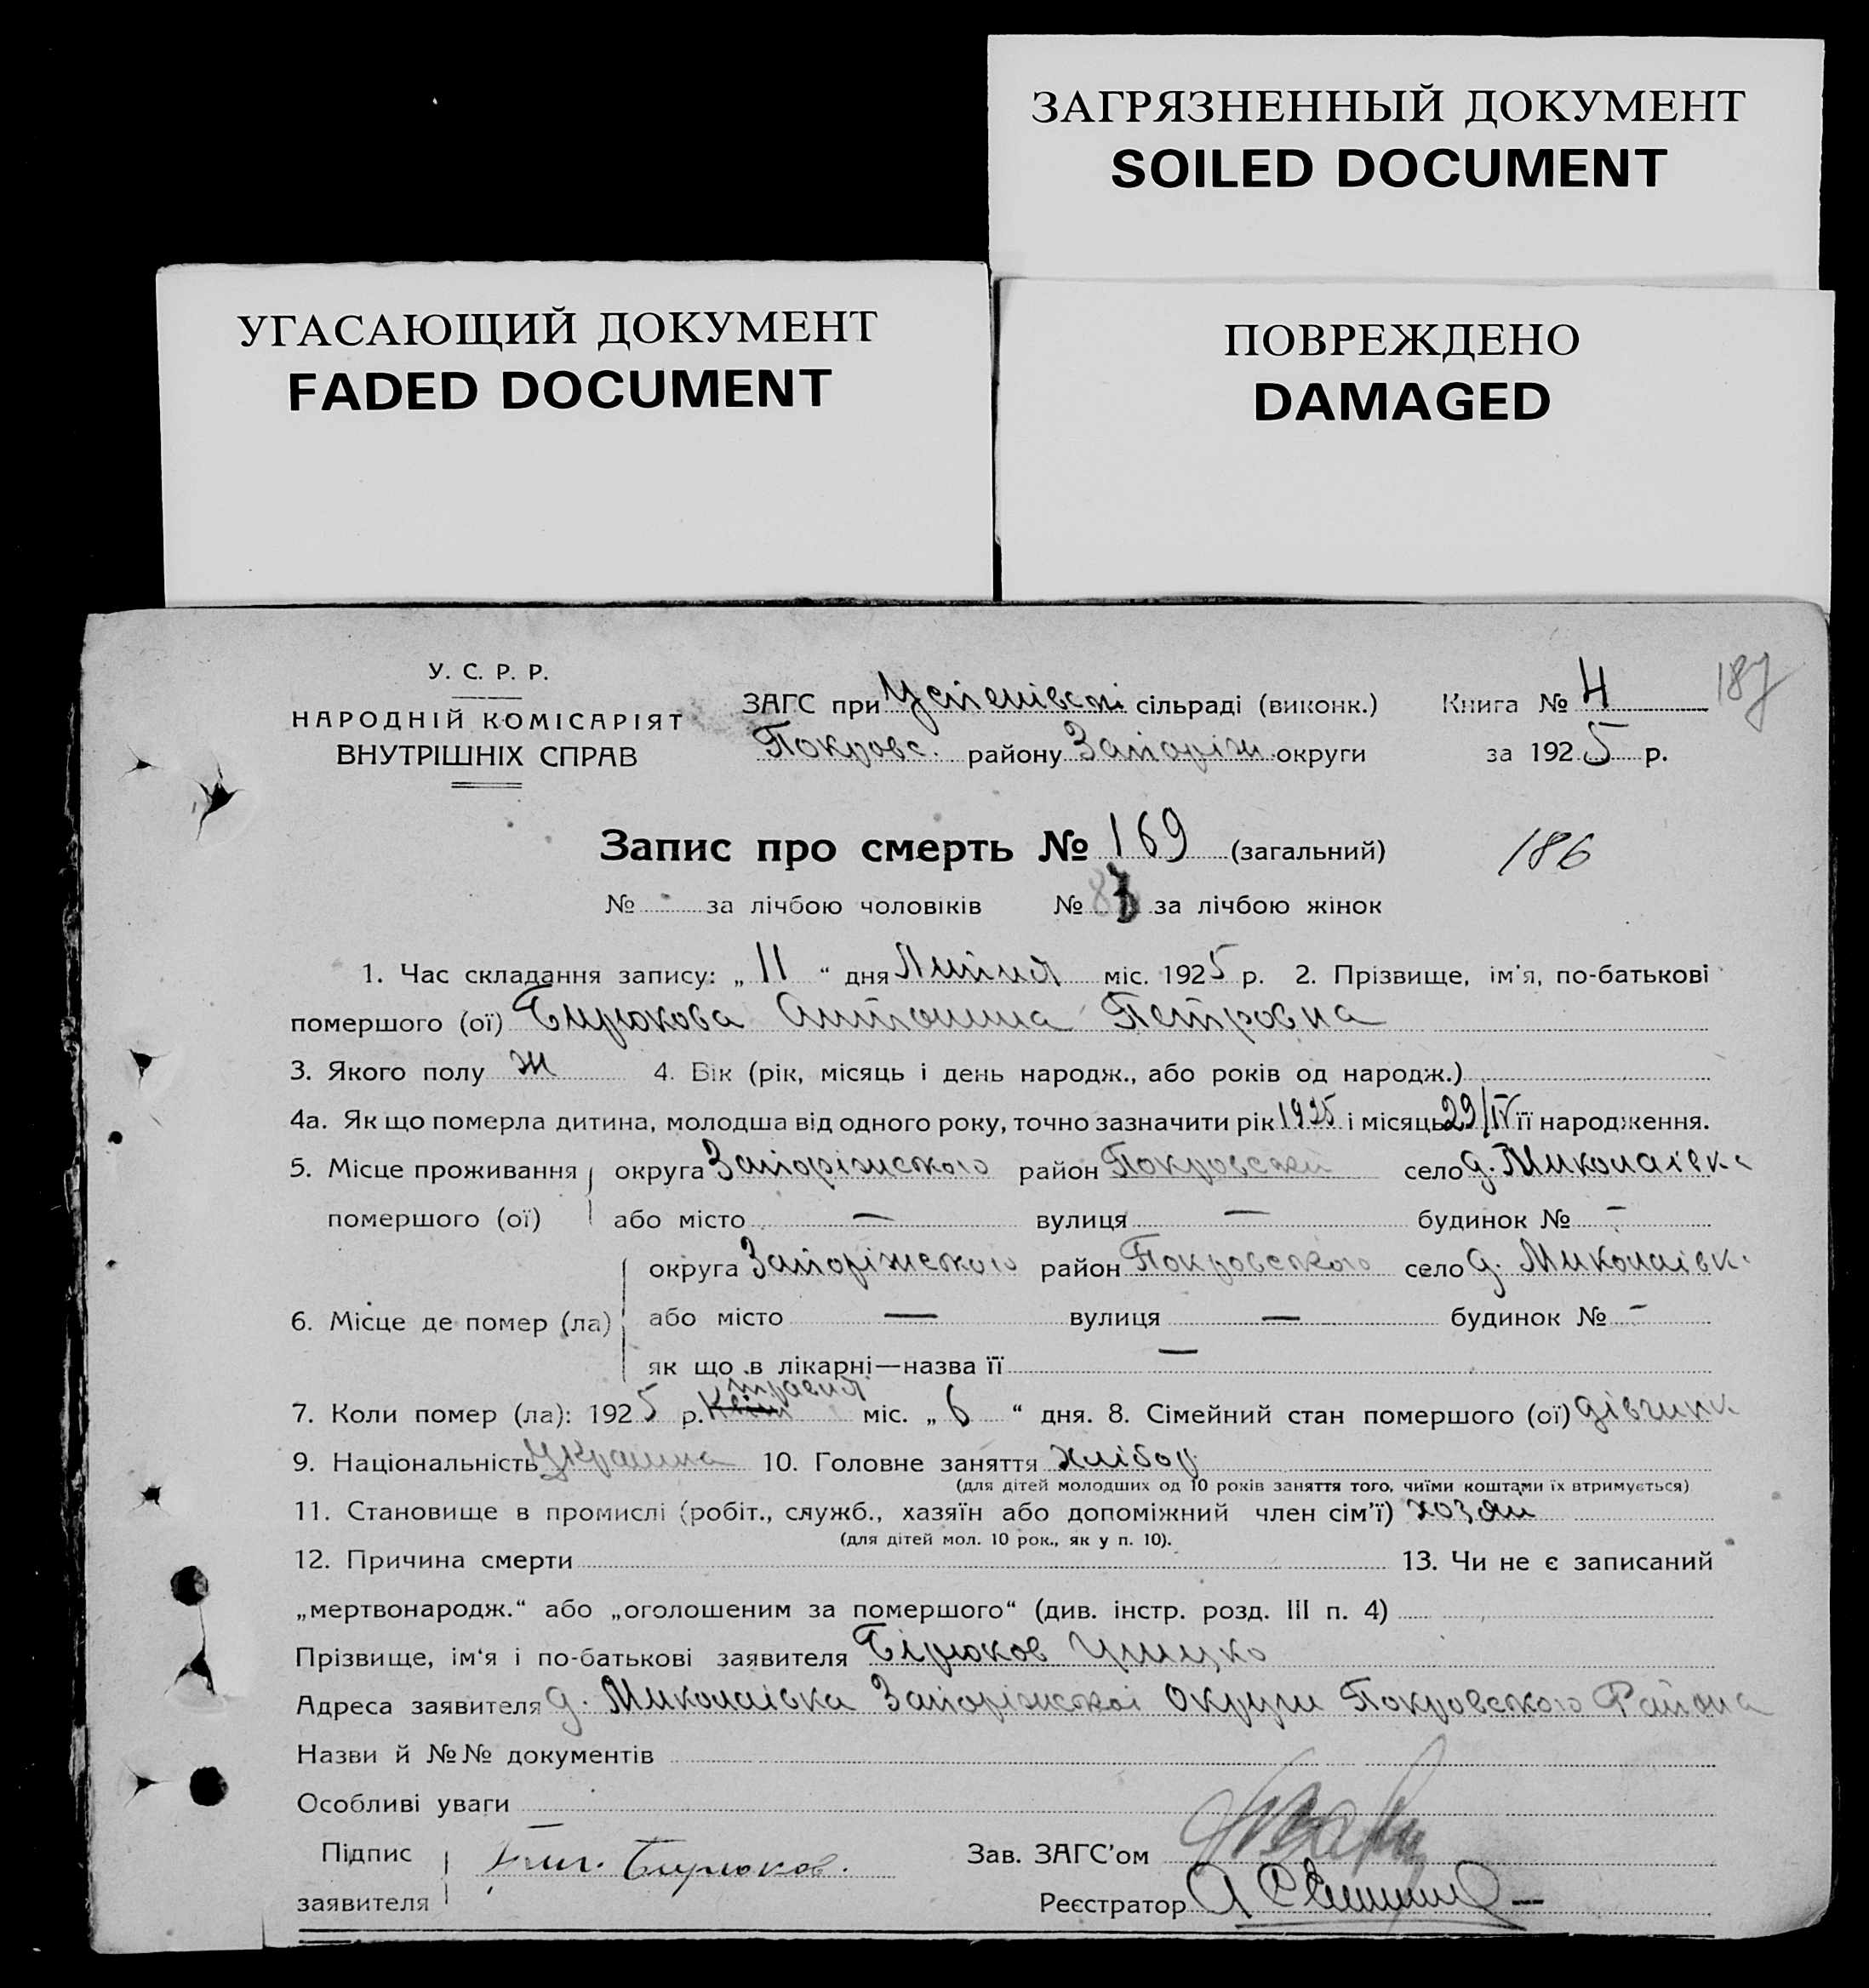 ЗАГРЯЗНЕННЫЙ ДОКУМЕНТ
SOILED DOCUMENT
УГАСАЮЩИЙ ДОКУМЕНТ
FADED DOCUMENT
ПОВРЕЖДЕНО
DAMAGED
У. С. Р. Р.
НАРОДНІЙ КОМІСАРІЯТ
ВНУТРІШНІХ СПРАВ
ЗАГС при Успенівскі сільраді (виконк.)
Покровс. району Запоріж округи
Книга № 4
187
за 1925 р.
Запис про смерть № 169 (загальний)
186
№ за лічбою чоловіків № за лічбою жінок
1. Час складання запису: „ 11 “ дня Липня міс. 1925 р. 2. Прізвище, ім'я, по-батькові
помершого (ої) Бирюкова Антонина Петровна
3. Якого полу ж 4. Вік (рік, місяць і день народж., або років од народж.)
4а. Як що померла дитина, молодша від одного року, точно зазначити рік 1925 і місяць 29/IV її народження.
5. Місце проживання округа Запоріжского район Покровский село д. Миколаівка
помершого (ої) або місто — вулиця — будинок № –
округа Запоріжского район Покровського село д. Миколаівк.
6. Місце де помер (ла) або місто — вулиця — будинок № –
як що в лікарні—назва її —
травня
7. Коли помер (ла): 1925 р. Квіт міс. „ 6 “ дня. 8. Сімейний стан помершого (ої) дівчина
9. Національність Украинка 10. Головне заняття хлібор
(для дітей молодших од 10 років заняття того, чиїми коштами їх втримується)
11. Становище в промислі (робіт., служб., хазяїн або допоміжний член сім'ї) хозяи
(для дітей мол. 10 рок., як у п. 10).
12. Причина смерти 13. Чи не є записаний
„мертвонародж.“ або „оголошеним за помершого“ (див. інстр. розд. III п. 4)
Прізвище, ім'я і по-батькові заявителя Бірюков
Адреса заявителя д. Миколаівка Запоріжскоі Округи Покровского Района
Назви й №№ документів
Особливі уваги
Підпис
заявителя
Бирюков.
Зав. ЗАГС'ом
Реєстратор